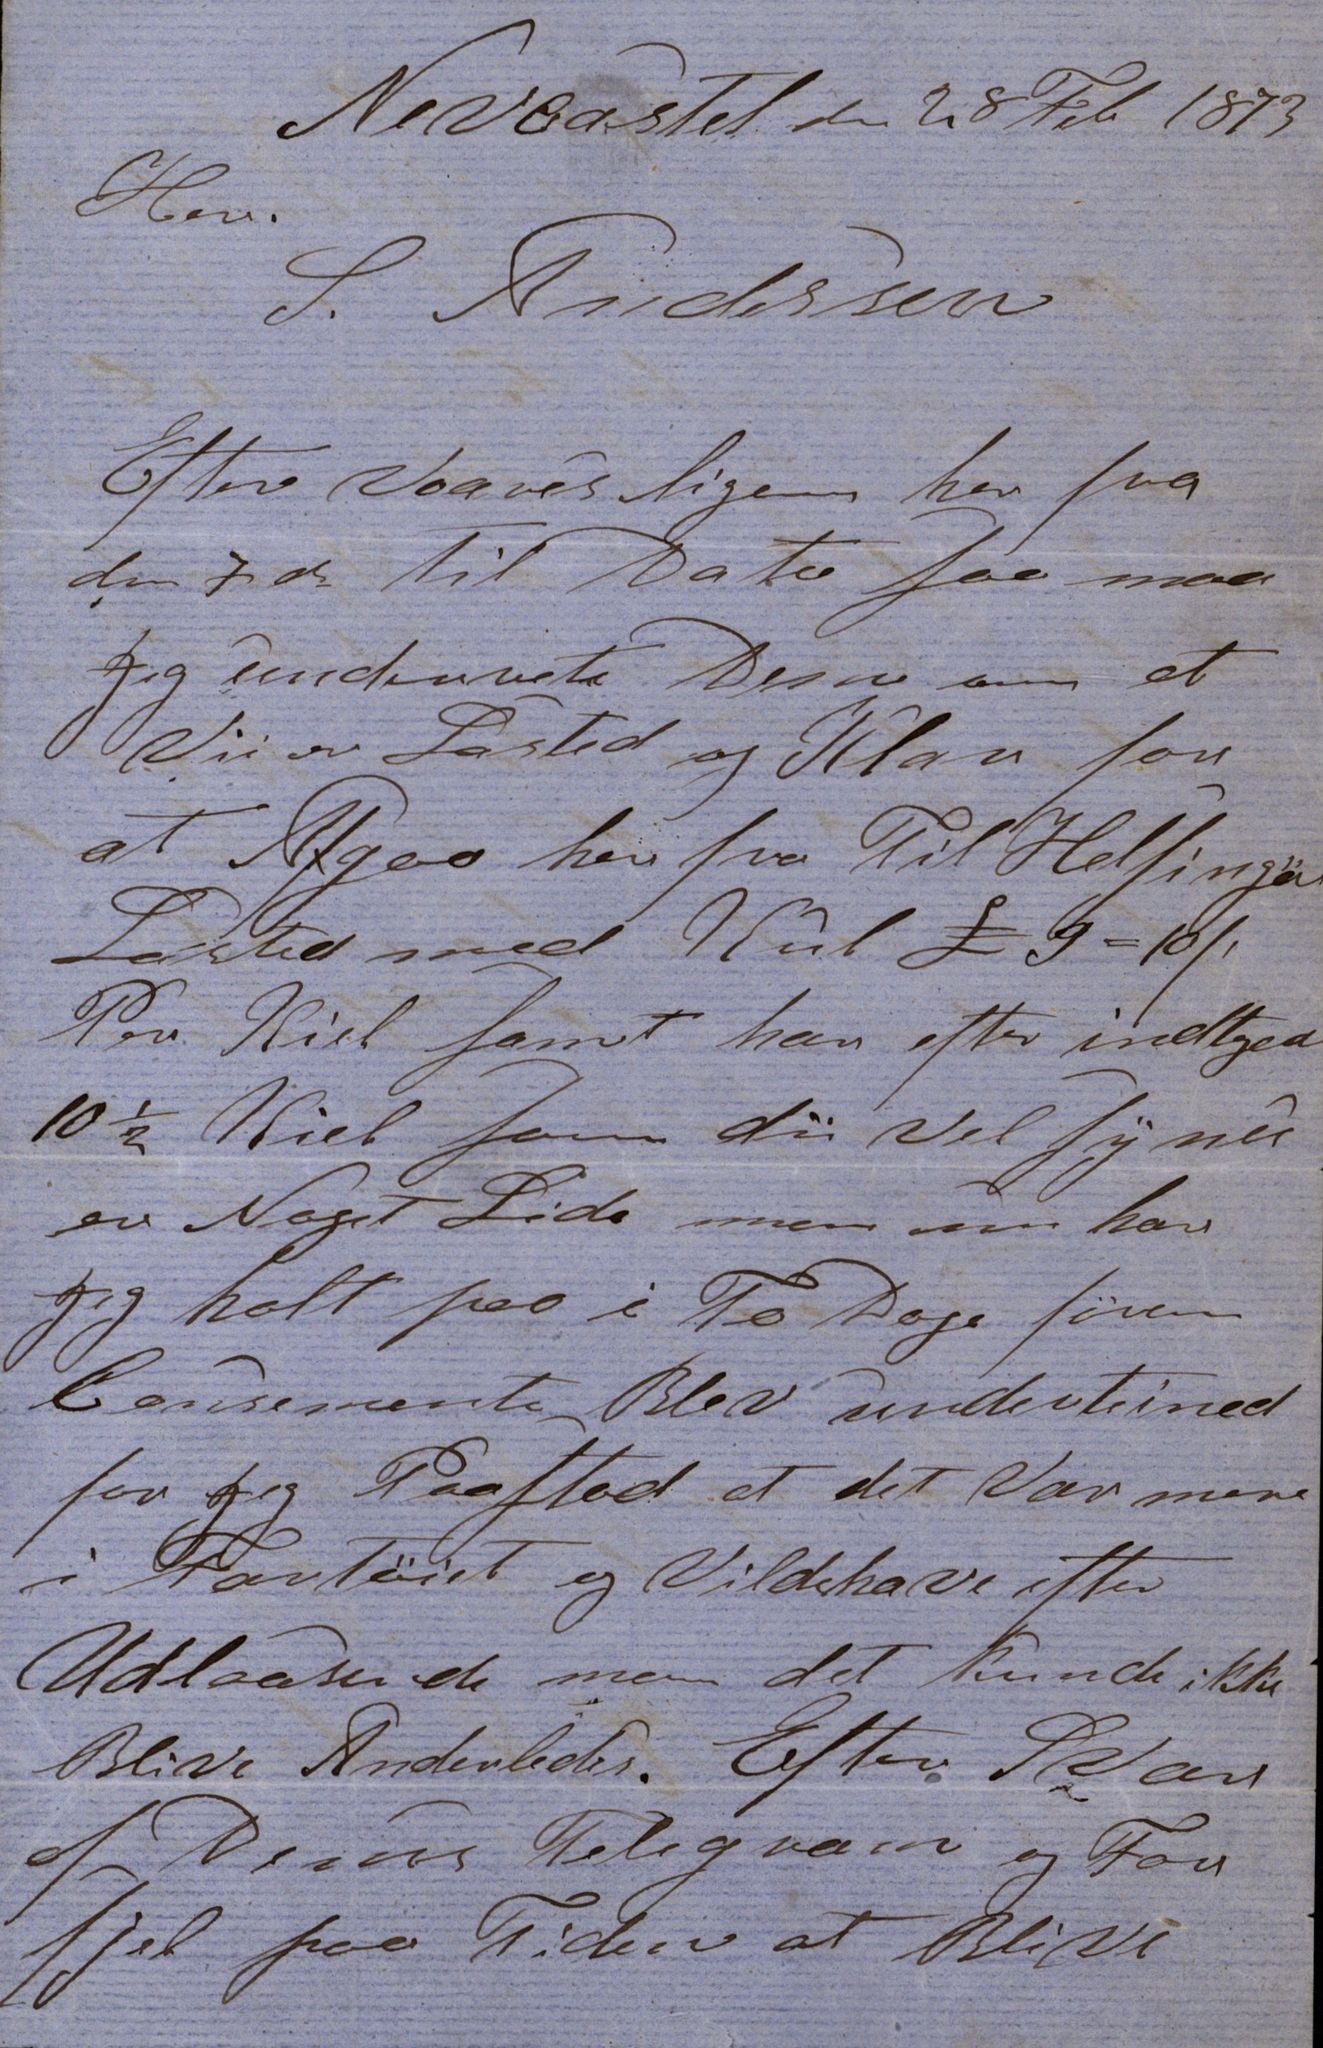 Nevcastel den 28 Feb 1873
Herr.
S. Andersen
Efter Voares ligen her fra
den 7 ds til Dato saa maa
jeg underrete Dem om at
Vii er Lasted og Klar for
at Afgaa her fra Til Helsingør
Lasted med Kul £ 9=10/.
Per Kiel samt har efter indtged
10 1/2 Kiel som dii vel sÿnes
er Noget Lide men nu har
jeg holt paa i To Dage føren
Consemente Blev undertined
for jeg Paastod at det Var mere
i Fartöiet og Vildehave efter
Udloasende men det kunde ikke
Blive Anderledes. Efter SVar
af Deres Telegram og For
sjel paa Tiden at Blive